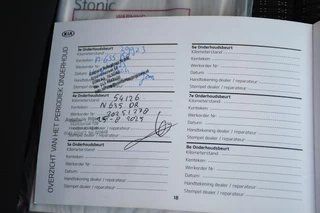 Stonic
KIA
OVERZICHT VAN HET PERIODIEK ONDERHOUD
3e Onderhoudsbeurt
Kilometerstand 39923
Kenteken N-635
Werkorder Nr
Datum
Handtekening dealer / reparateur
Stempel dealer / reparateur
4e Onderhoudsbeurt
Kilometerstand 54126
Kenteken N 635 DR
Werkorder Nr
Datum
Handtekening dealer / reparateur
Stempel dealer / reparateur
5e Onderhoudsbeurt
Kilometerstand
Kenteken
Werkorder Nr
Datum
Handtekening dealer / reparateur
Stempel dealer / reparateur
6e Onderhoudsbeurt
Kilometerstand
Kenteken
Werkorder Nr
Datum
Handtekening dealer / reparateur
Stempel dealer / reparateur
Kilometerstand
Kenteken
Werkorder Nr
Datum
Handtekening dealer / reparateur
Stempel dealer / reparateur
8e Onderhoudsbeurt
Kilometerstand
Kenteken
Werkorder Nr
Datum
Handtekening dealer / reparateur
Stempel dealer / reparateur
18